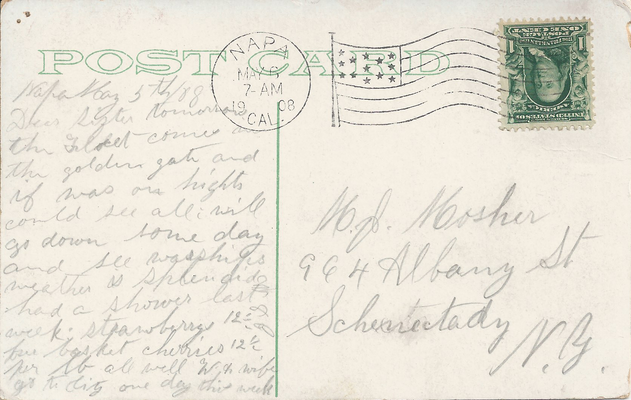 POST CARD
NAPA
MAY 6
7-AM
1908
CAL.
Napa May 5th/08
Dear Sister tomorrow
the Fleet comes in
the golden gate and
if was on hights
could see all: will
go down some day
and see warships
weather is splendid
had a shower last
week: strawberrys 12½
per basket cherries 12½
per lb all well W. & wife
go to city one day this week
M. J. Mosher
964 Albany St
Schenectady
N.Y.